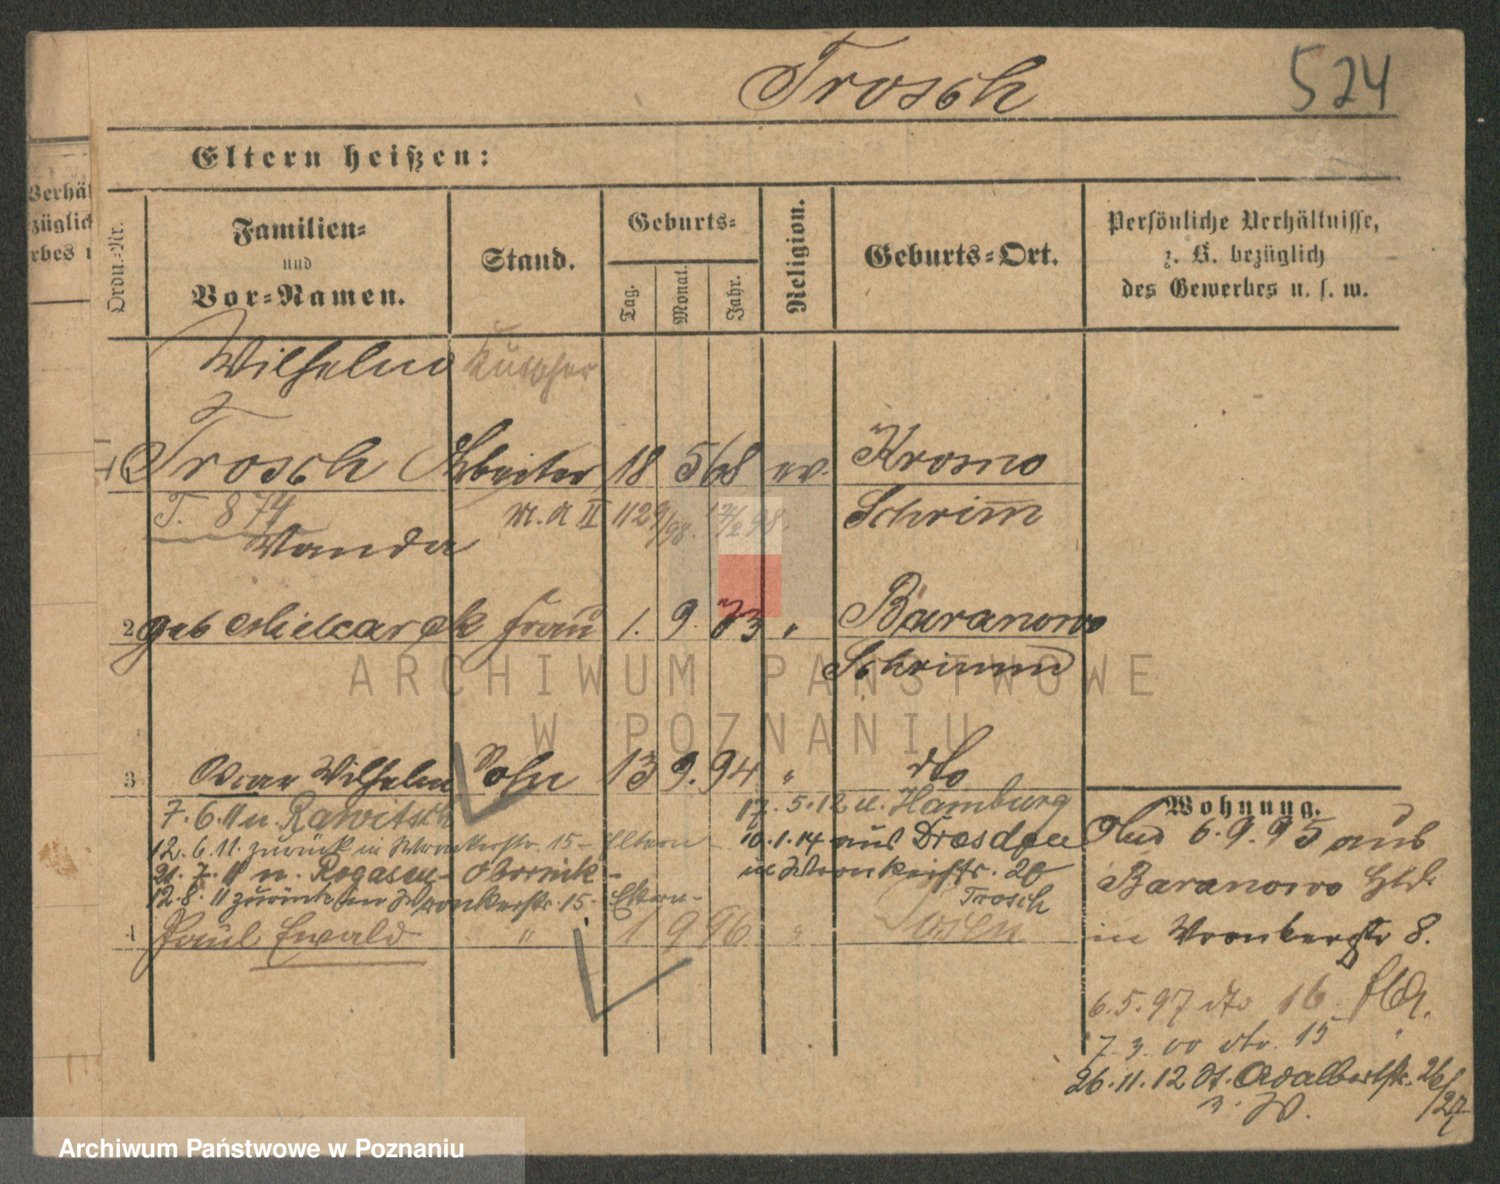 Trosch
524
Eltern heißen:
Verhäl
züglich
rbes u
Ordn.-Nr.
Familien-
und
Vor-Namen.
Stand.
Geburts-
Tag.
Monat.
Jahr.
Religion.
Geburts-Ort.
Persönliche Verhältnisse,
z. B. bezüglich
des Gewerbes u. s. w.
Wilhelm Kutscher
1 Trosch Arbeiter 18 5 68 ev. Kromo
T. 874 Schrim
Wanda
2 geb Miekarsk Frau 1. 9. 73 " Baranowo
Schrimm
3 Max Wilhelm Sohn 13 9. 94 " dto
7. 6. 11 n. Rawitsch 17. 5. 12 n. Hamburg
12. 6. 11. zurück in Wronkerstr. 15 - Eltern - 10. 1. 14 aus Dresden
21. 7. 11 n. Rogasen - Obornik - in Wronkerstr. 20
12. 8. 11 zurück in Wronkerstr. 15 - Eltern - Trosch
4 Paul Ewald " 1 9 96 " Posen
Wohnung.
6. 9. 95 aus
Baranowo
in Wronkerstr 8.
6. 5. 97 dto 16
7. 3. 00 dto. 15
26. 11. 12 St. Adalbertstr. 26/27
ARCHIWUM PAŃSTWOWE
W POZNANIU
Archiwum Państwowe w Poznaniu